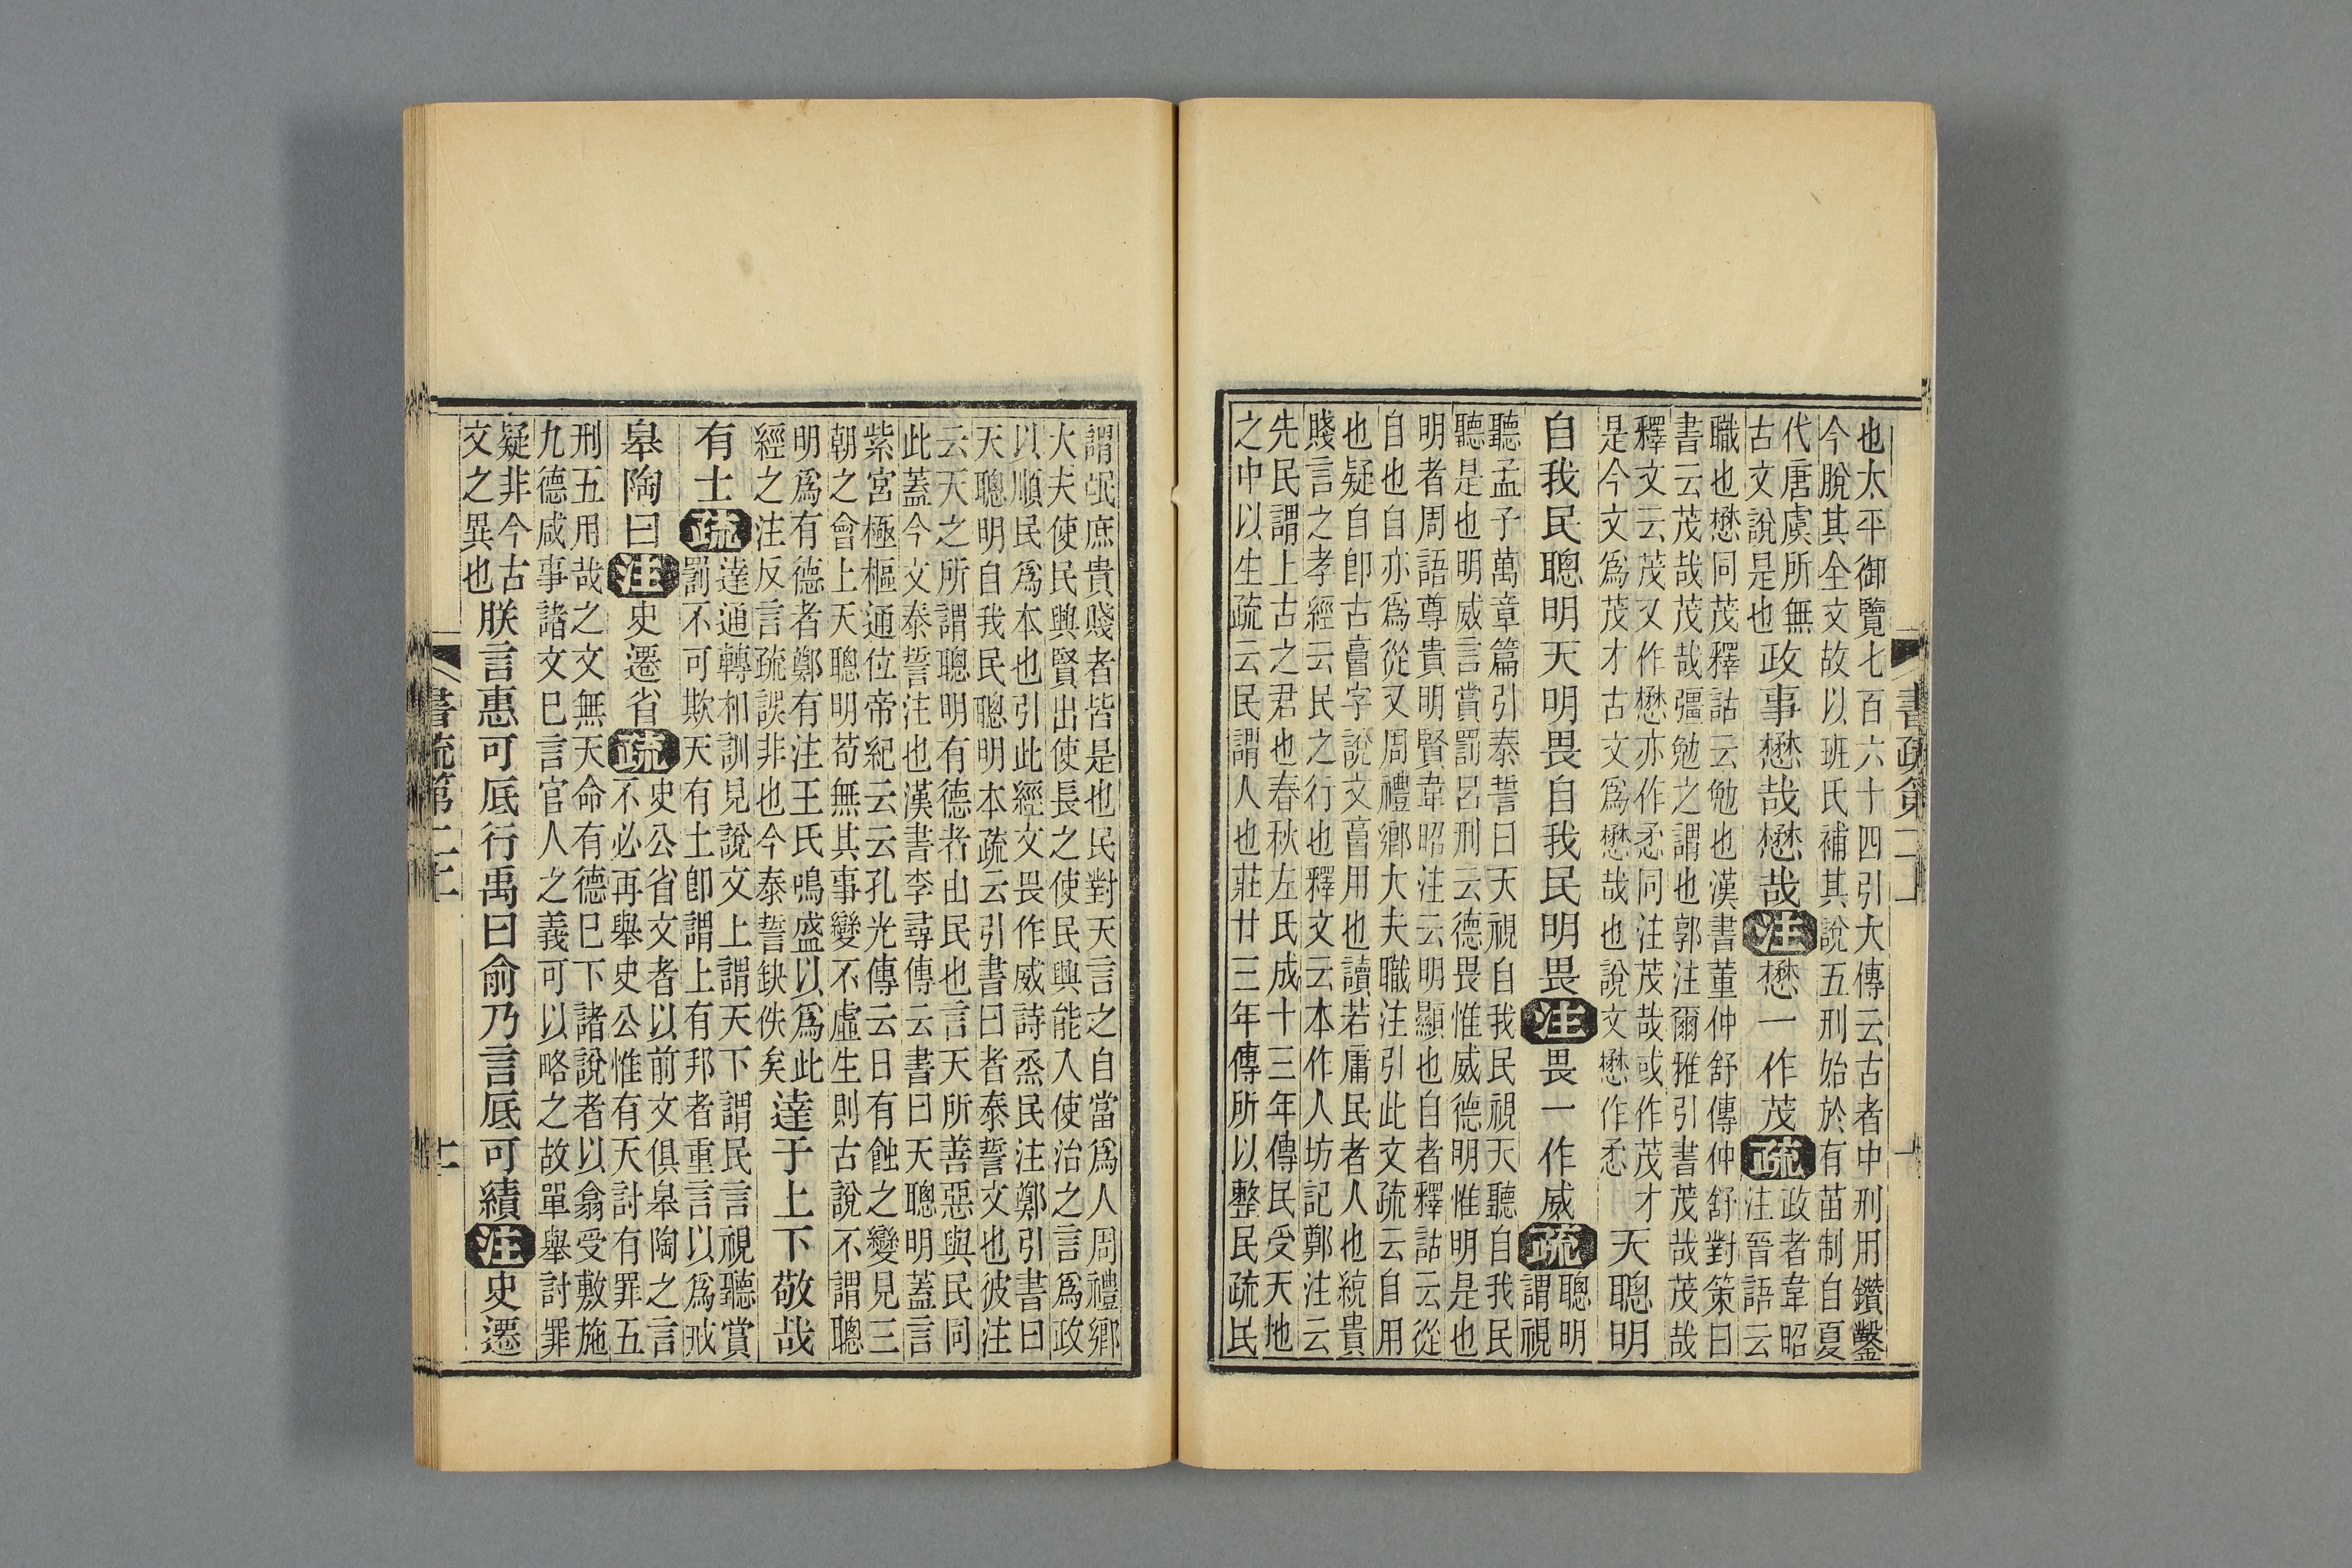 書疏第二上
也太平御覽七百六十四引大傳云古者中刑用鑽鑿
今脫其全文故以班氏補其說五刑始於有苗制自夏
代唐虞所無
古文說是也
政事懋哉懋哉注懋一作茂疏
政者韋昭
注晉語云
職也懋同茂釋詁云勉也漢書董仲舒傳仲舒對策曰
書云茂哉茂哉彊勉之謂也郭注爾雅引書茂哉茂哉
釋文云茂又作懋亦作同注茂哉或作茂才
是今文爲茂才古文爲懋哉也說文懋作
天聰明
自我民聰明天明畏自我民明畏注畏一作威疏
聰明
謂視
聽孟子萬章篇引泰誓曰天視自我民視天聽自我民
聽是也明威言賞罰呂刑云德畏惟威德明惟明是也
明者周語尊貴明賢韋昭注云明顯也自者釋詁云從
自也自亦爲從又周禮鄉大夫職注引此文疏云自用
也疑自卽古𦤝字說文𦤝用也讀若庸民者人也統貴
賤言之孝經云民之行也釋文云本作人坊記鄭注云
先民謂上古之君也春秋左氏成十三年傳民受天地
之中以生疏云民謂人也莊廿三年傳所以整民疏民
謂氓庶貴賤者皆是也民對天言之自當爲人周禮鄉
大夫使民興賢出使長之使民興能入使治之言爲政
以順民爲本也引此經文畏作威詩烝民注鄭引書曰
天聰明自我民聰明本疏云引書曰者泰誓文也彼注
云天之所謂聰明有德者由民也言天所善惡與民同
此蓋今文泰誓注也漢書李尋傳云書曰天聰明蓋言
紫宮極樞通位帝紀云云孔光傳云日有蝕之變見三
朝之會上天聰明苟無其事變不虛生則古說不謂聰
明爲有德者鄭有注王氏鳴盛以爲此
經之注反言疏誤非也今泰誓缺佚矣
達于上下敬哉
有土疏
達通轉相訓見說文上謂天下謂民言視聽賞
罰不可欺天有土卽謂上有邦者重言以爲戒
皋陶曰注史遷省疏
史公省文者以前文俱皋陶之言
不必再舉史公惟有天討有罪五
刑五用哉之文無天命有德巳下諸說者以翕受敷施
九德咸事諸文巳言官人之義可以略之故單舉討罪
疑非今古
文之異也
朕言惠可厎行禹曰俞乃言厎可績注史遷
書疏第二上
十